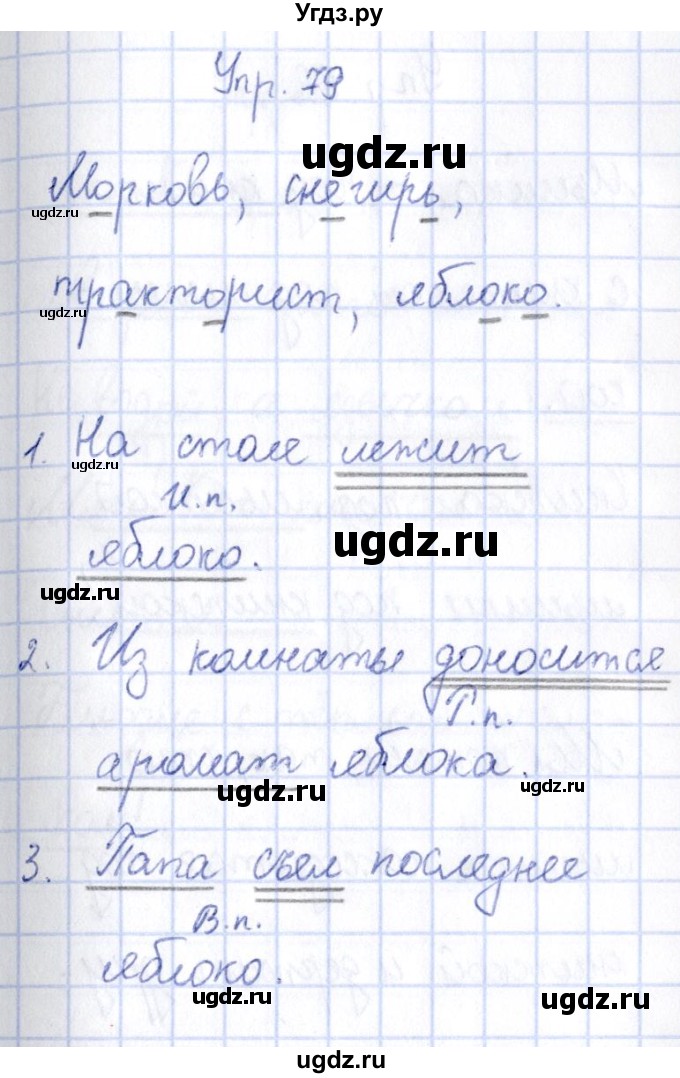 Угдз.ру
Упр. 79
ugdz.ru
Морковь, снегирь,
ugdz.ru
тракторист, яблоко.
ugdz.ru
1. На столе лежит
ugdz.ru
И.п.
ugdz.ru
яблоко.
ugdz.ru
2. Из комнаты доносится
Р.п.
аромат яблока.
ugdz.ru ugdz.ru
3. Папа съел последнее
В.п.
яблоко.
ugdz.ru ugdz.ru
ugdz.ru